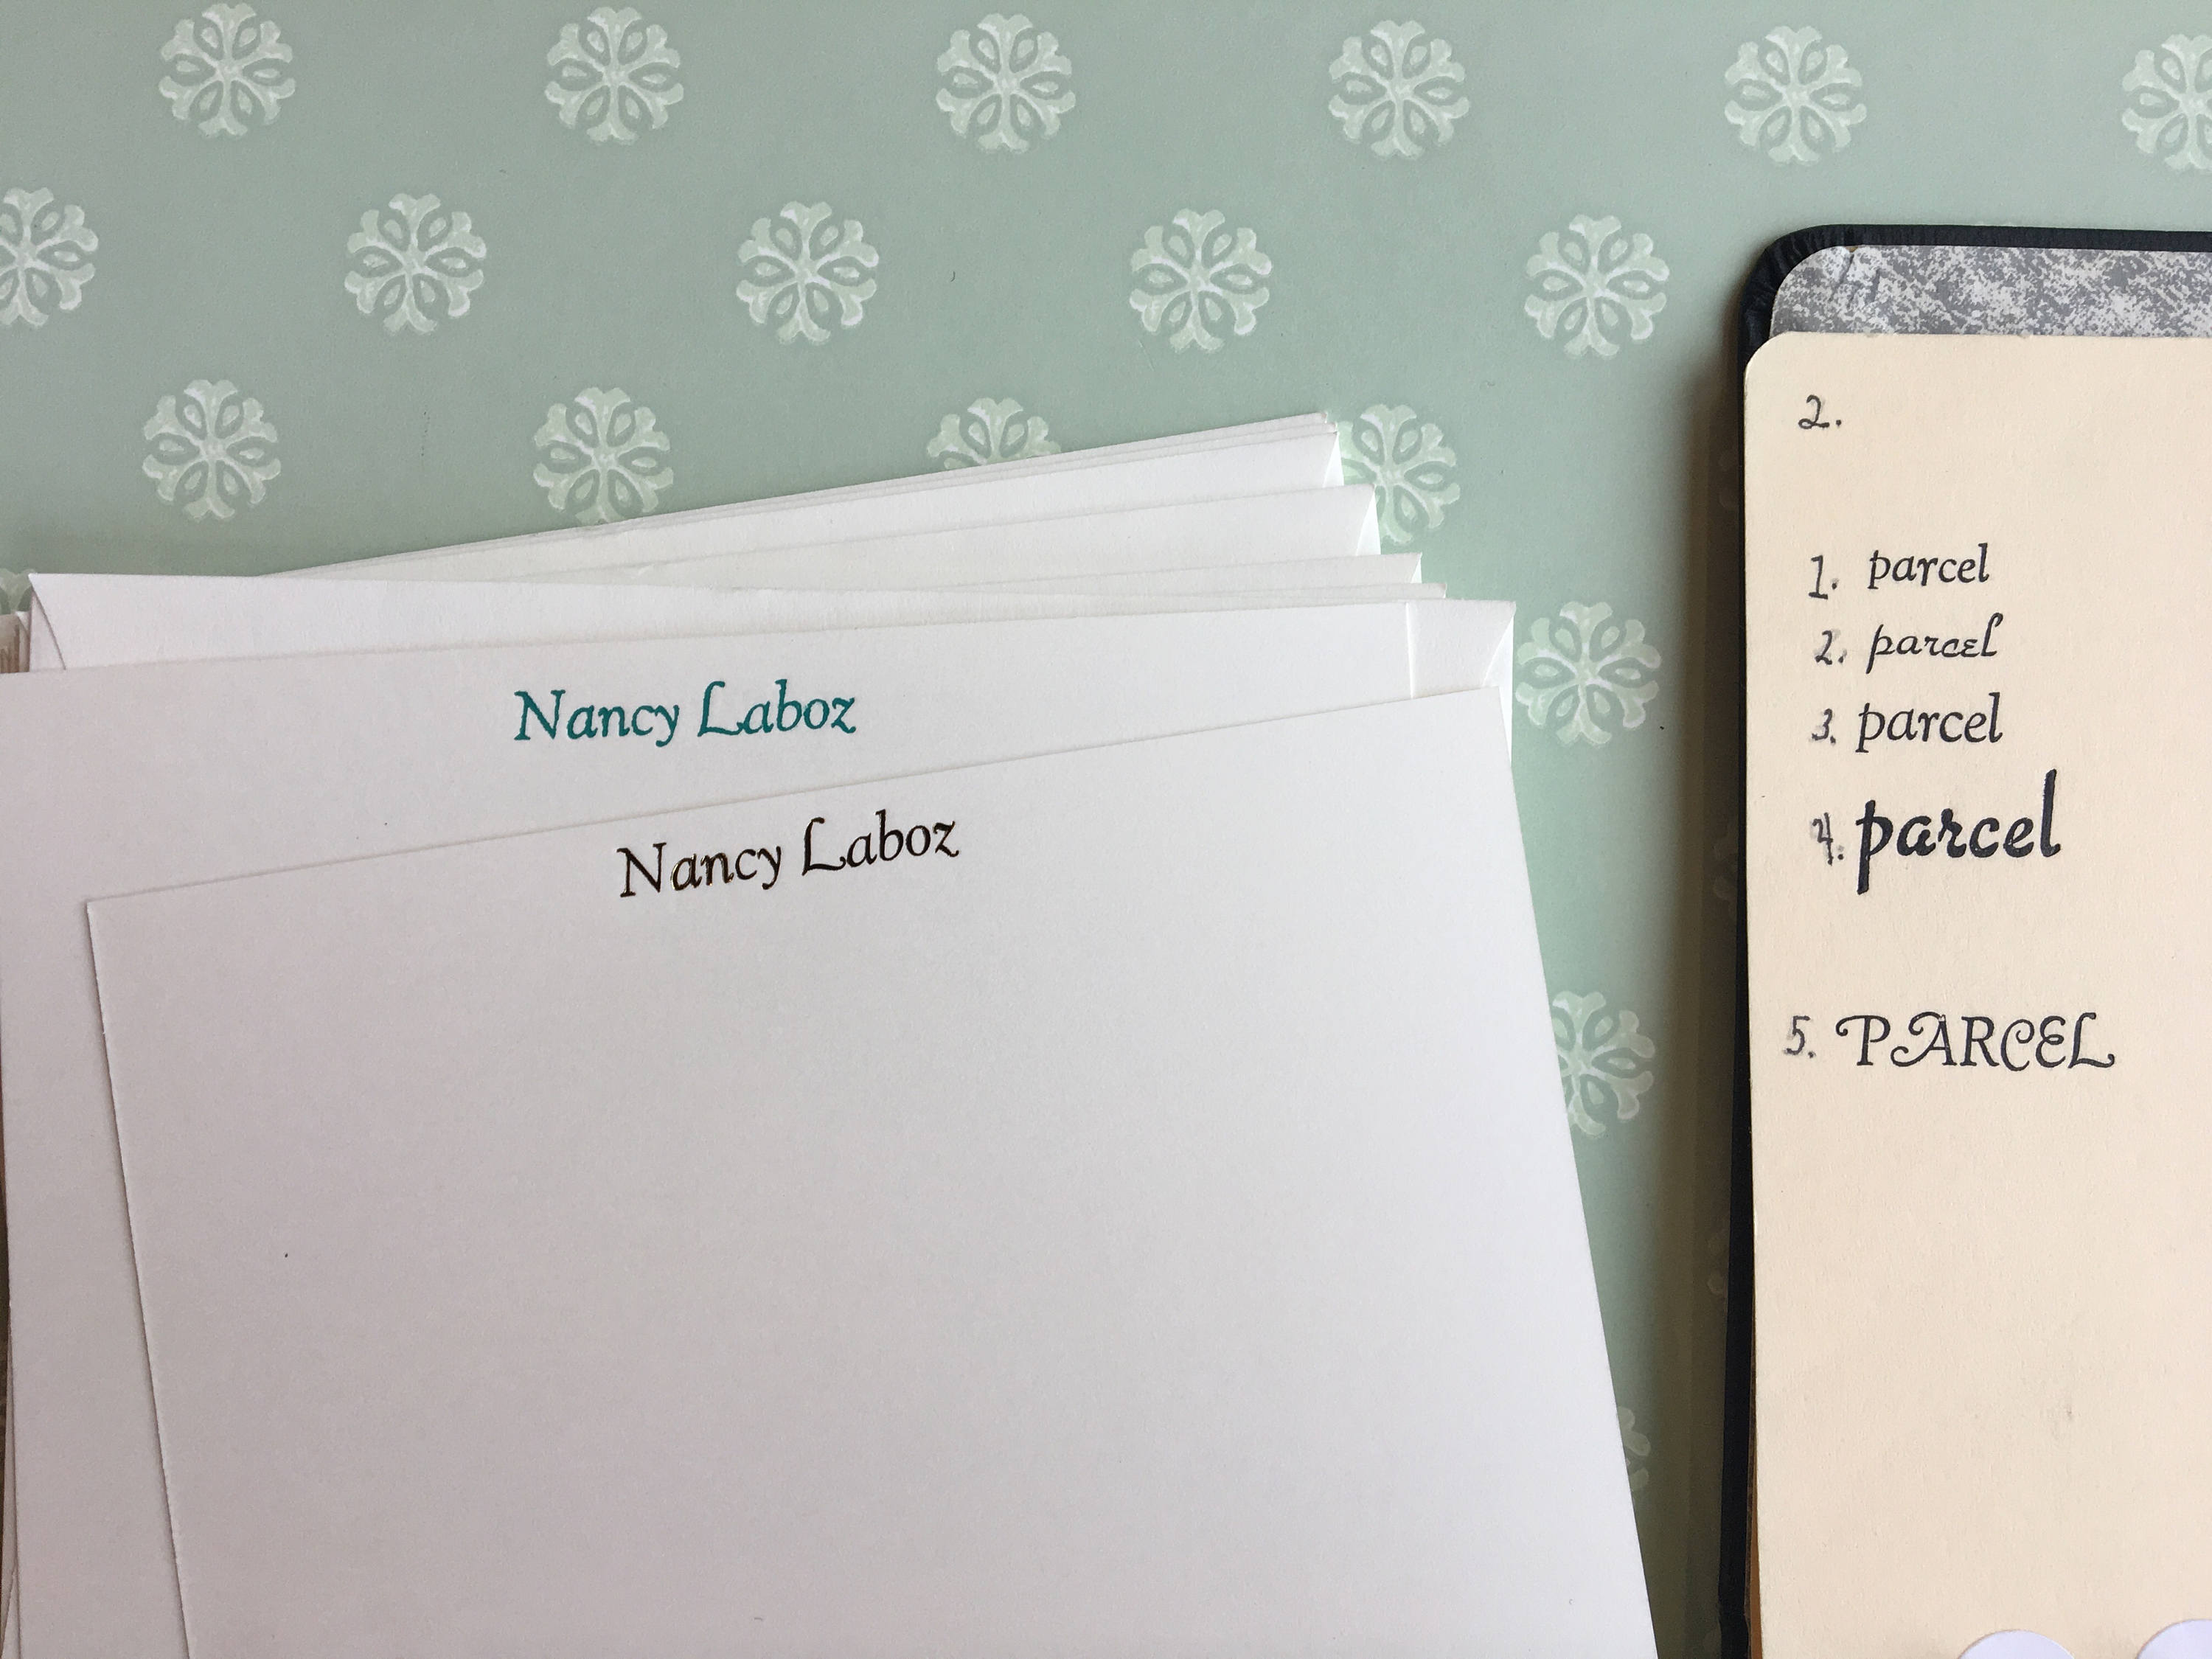 Nancy Laboz
Nancy Laboz
2.
1. parcel
2. parcel
3. parcel
4. parcel
5. PARCEL